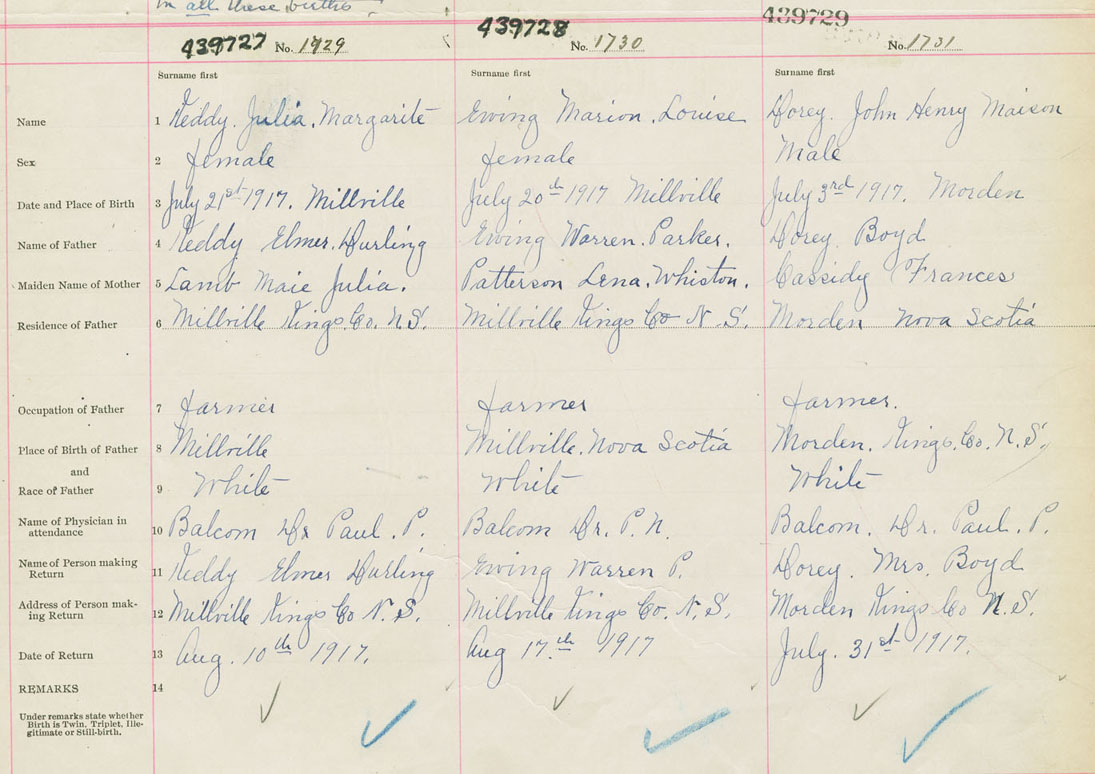 in all these births.
439727 No. 1729
439728 No. 1730
439729 No. 1731
Surname first Surname first Surname first
Name 1 Keddy. Julia. Margarite Ewing Marion. Louise Dorey. John Henry Maison
Sex 2 female female Male
Date and Place of Birth 3 July 21st 1917. Millville July 20th 1917 Millville July 3rd 1917. Morden
Name of Father 4 Keddy Elmer. Durling Ewing Warren. Parker. Dorey. Boyd
Maiden Name of Mother 5 Lamb Maie Julia. Patterson Lena. Whiston. Cassidy Frances
Residence of Father 6 Millville Kings. Co. N.S. Millville Kings Co N.S. Morden Nova Scotia
Occupation of Father 7 farmer farmer farmer.
Place of Birth of Father 8 Millville Millville. Nova Scotia Morden. Kings. Co. N.S.
and
Race of Father 9 White White White
Name of Physician in attendance 10 Balcom Dr Paul. P. Balcom Dr. P. N. Balcom. Dr. Paul. P.
Name of Person making Return 11 Keddy Elmer Durling Ewing Warren P. Dorey. Mrs. Boyd
Address of Person mak-ing Return 12 Millville Kings Co N.S. Millville Kings Co. N.S. Morden Kings Co N.S.
Date of Return 13 Aug. 10th 1917. Aug 17.th 1917 July. 31st 1917.
REMARKS 14
Under remarks state whether
Birth is Twin, Triplet, Ille-
gitimate or Still-birth.